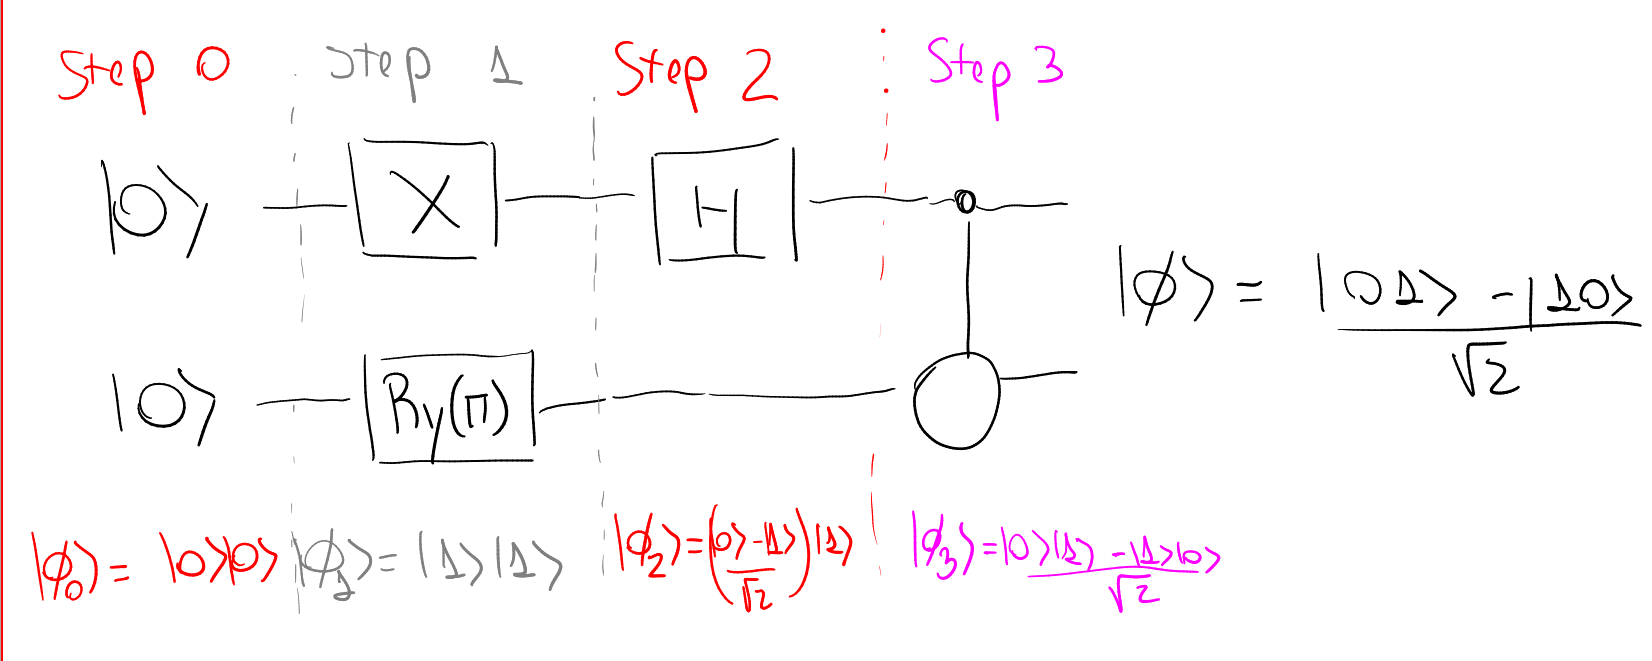 Step 0 Step 1 Step 2 Step 3
|0⟩ X H
|ϕ⟩ = |01⟩ - |10⟩
√2
|0⟩ Ry(π)
|ϕ₀⟩ = |0⟩|0⟩ |ϕ₁⟩ = |1⟩|1⟩ |ϕ₂⟩ = (|0⟩ - |1⟩ / √2) |1⟩ |ϕ₃⟩ = |0⟩|1⟩ - |1⟩|0⟩ / √2